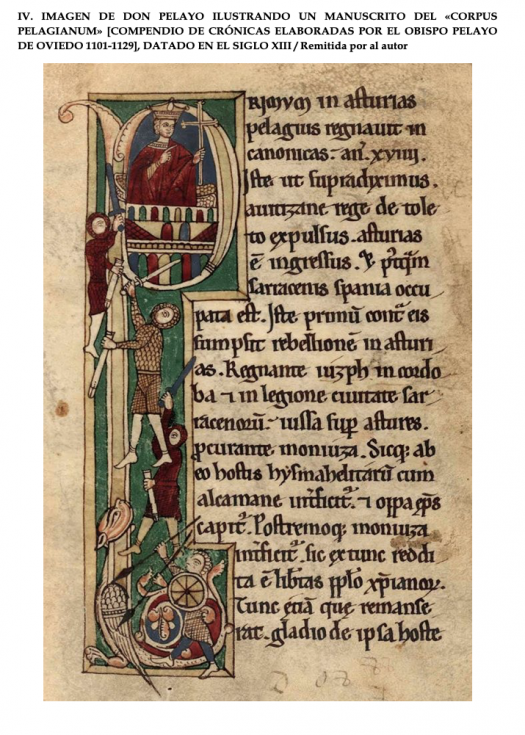 IV. IMAGEN DE DON PELAYO ILUSTRANDO UN MANUSCRITO DEL «CORPUS
PELAGIANUM» [COMPENDIO DE CRÓNICAS ELABORADAS POR EL OBISPO PELAYO
DE OVIEDO 1101-1129], DATADO EN EL SIGLO XIII / Remitida por al autor
PRimvm in asturias
pelagius regnauit in
canonicas. añ. xviiij.
Iste ut supradiximus.
a uitizane rege de tole
to expulsus. asturias
ē ingressus. & p̄tq̄m
sarracenis spania occu
pata est. Iste primū cont̄ eis
sumpsit rebellionē in asturi
as. Regnante iuzph in cordo
ba ⁊ in legione ciuitate sar
racenorū. iussa sup̄ astures.
p̄curante moniuza. Sicq; ab
eo hostis hysmahelitarū cum
alcamane int̄ficit̄. ⁊ oppa ep̄s
capit̄. Postremoq; moniuza
int̄ficit̄. sic ex tunc reddi
ta ē lib̄tas pp̄lo xp̄ianoꝝ.
Tunc etiā que remanse
rat. gladio de ipsa hoste